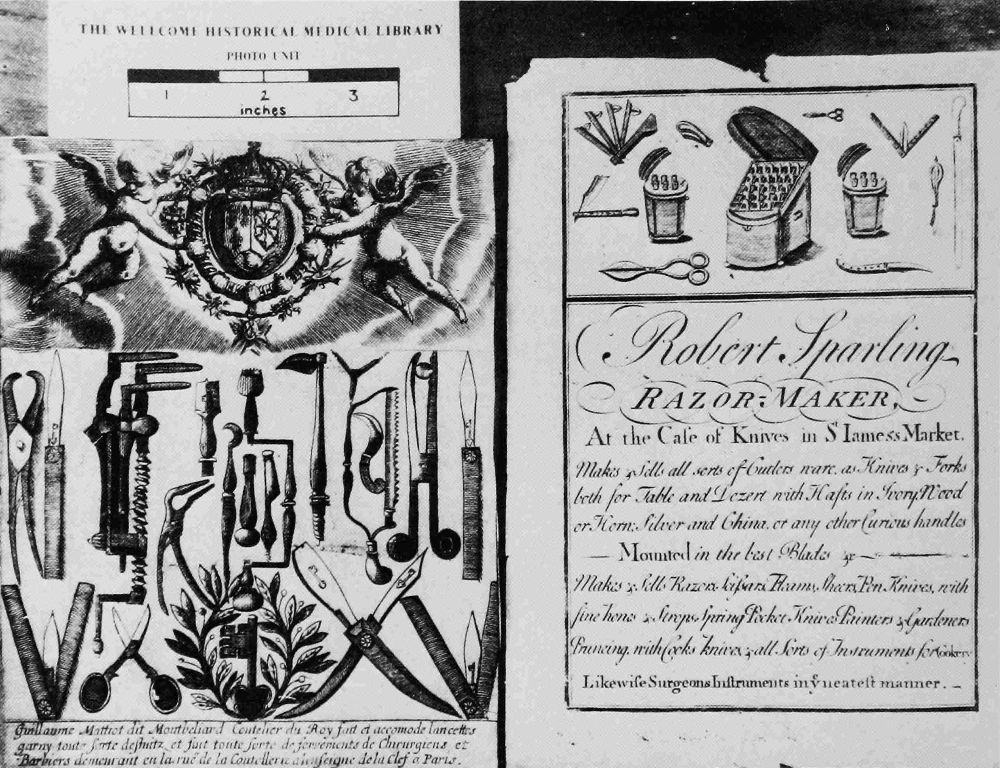 THE WELLCOME HISTORICAL MEDICAL LIBRARY
PHOTO UNIT
1 2 3
inches
Guillaume Mattrot dit Montbeliard Coutelier du Roy fait et accomode lancettes
garny toute sorte destuitz et fait toute sorte de ferrements de Chirurgiens et
Barbiers demeurant en la rue de la Coutellerie a lenseigne de la Clef a Paris.
Robert Sparling
RAZOR-MAKER,
At the Case of Knives in St Iames's Market.
Makes & Sells all sorts of Cutlers ware, as Knives & Forks
both for Table and Dezert with Hafts in Ivory, Wood
or Horn; Silver and China, or any other Curious handles
Mounted in the best Blades &c
Makes & Sells Razors, Scissars, Fleams, Sheers, Pen Knives, with
fine hones & Strops, Spring Pocket Knives Painters & Gardeners
Pruneing, with Cooks knives, & all Sorts of Instruments for Cookery
Likewise Surgeons Instruments in ye neatest manner.